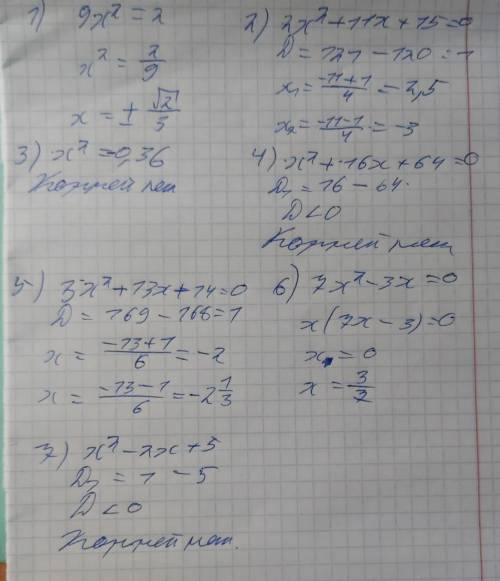 1) 9x² = 2
x² = 2/9
x = ± √2/3
2) 2x² + 11x + 15 = 0
D = 121 - 120 = 1
x₁ = -11+1/4 = -2,5
x₂ = -11-1/4 = -3
3) x² = -0,36
Корней нет
4) x² + 16x + 64 = 0
D₁ = 16 - 64
D < 0
Корней нет
5) 3x² + 13x + 14 = 0
D = 169 - 168 = 1
x = -13+1/6 = -2
x = -13-1/6 = -2 1/3
6) 7x² - 3x = 0
x(7x - 3) = 0
x = 0
x = 3/7
7) x² - 2x + 5
D₁ = 1 - 5
D < 0
Корней нет.